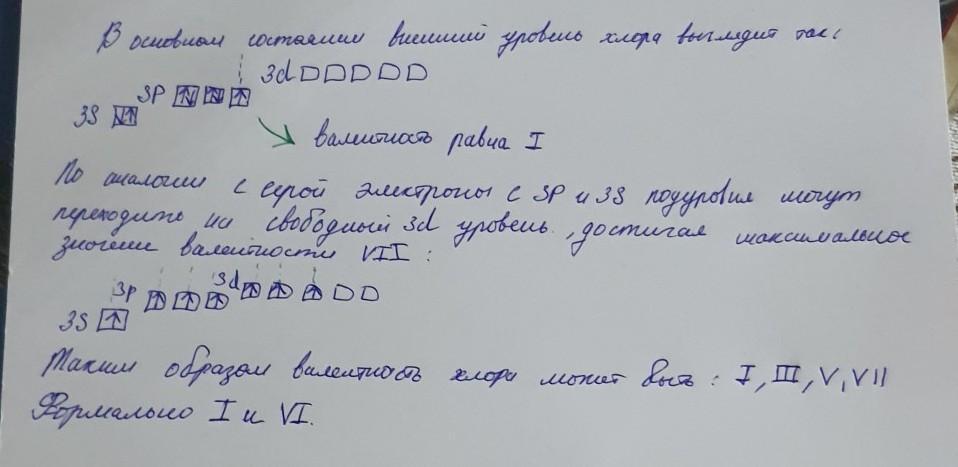 В основном состоянии внешний уровень хлора выглядит так:
3d
3p
3S
валентность равна I
По аналогии с серой электроны с 3p и 3S подуровня могут
переходить на свободный 3d уровень, достигая максимальное
значение валентности VII:
3p 3d
3S
Таким образом валентность хлора может быть: I, III, V, VII
Формально I и VI.